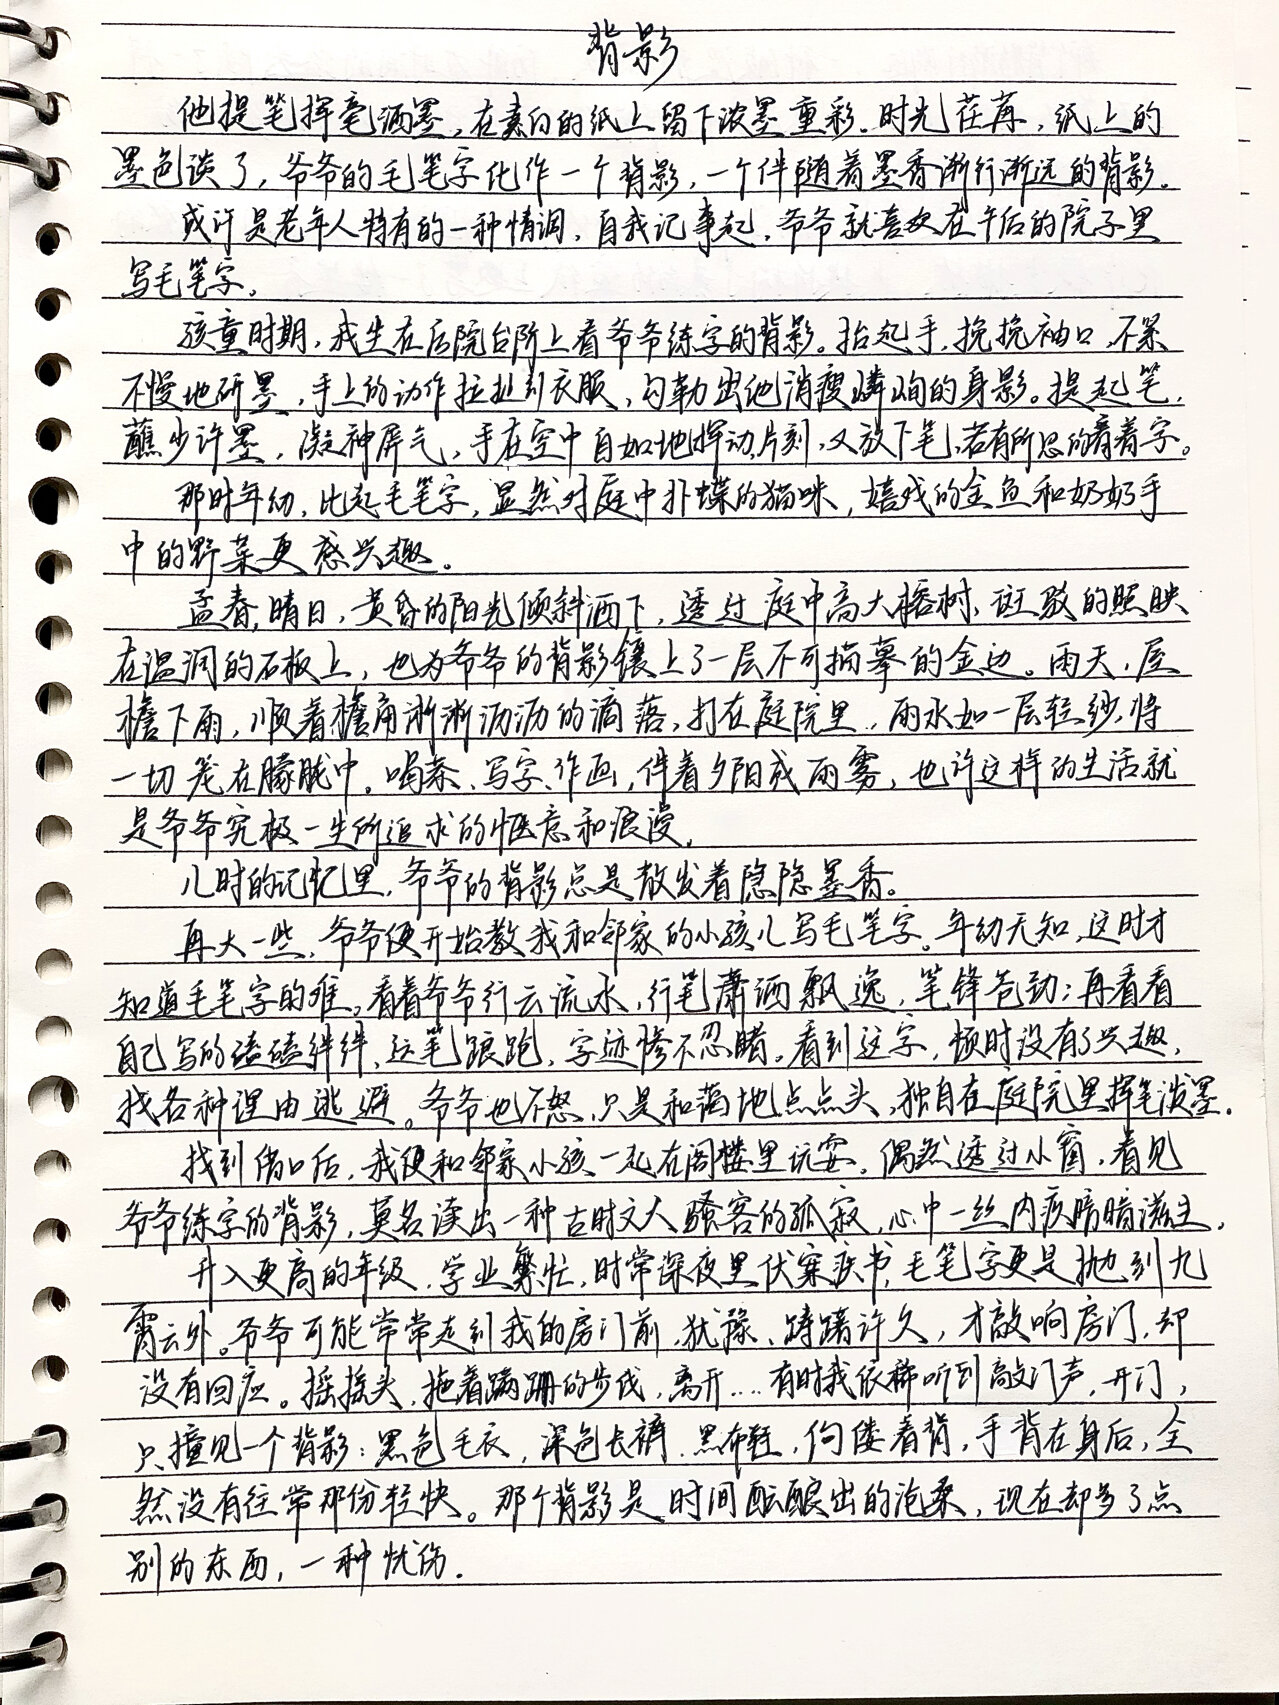 背影
他提笔挥毫洒墨，在素白的纸上留下浓墨重彩。时光荏苒，纸上的
墨色淡了，爷爷的毛笔字化作一个背影，一个伴随着墨香渐行渐远的背影。
或许是老年人特有的一种情调，自我记事起，爷爷就喜欢在午后的院子里
写毛笔字。
孩童时期，我坐在后院台阶上看爷爷练字的背影。抬起手，挽挽袖口，不紧
不慢地研墨，手上的动作拉扯到衣服，勾勒出他消瘦嶙峋的身影。提起笔，
蘸少许墨，凝神屏气，手在空中自如地挥动片刻，又放下笔，若有所思的看着字。
那时年幼，比起毛笔字，显然对庭中扑蝶的猫咪，嬉戏的金鱼和奶奶手
中的野菜更感兴趣。
孟春，晴日，黄昏的阳光倾斜洒下，透过庭中高大榕树，斑驳的照映
在温润的石板上，也为爷爷的背影镶上了一层不可描摹的金边。雨天，屋
檐下雨，顺着檐角淅淅沥沥的滴落，打在庭院里，雨水如一层轻纱，将
一切笼在朦胧中。喝茶、写字、作画，伴着夕阳或雨雾，也许这样的生活就
是爷爷究极一生所追求的惬意和浪漫。
儿时的记忆里，爷爷的背影总是散发着隐隐墨香。
再大一些，爷爷便开始教我和邻家的小孩儿写毛笔字。年幼无知，这时才
知道毛笔字的难。看着爷爷行云流水，行笔潇洒飘逸，笔锋苍劲；再看看
自己写的磕磕绊绊，运笔踉跄，字迹惨不忍睹。看到这字，顿时没有了兴趣，
找各种理由逃避。爷爷也不怒，只是和蔼地点点头，独自在庭院里挥笔泼墨。
找到借口后，我便和邻家小孩一起在阁楼里玩耍。偶然透过小窗，看见
爷爷练字的背影，莫名读出一种古时文人骚客的孤寂，心中一丝内疚暗暗滋生。
升入更高的年级，学业繁忙，时常深夜里伏案疾书，毛笔字更是抛到九
霄云外。爷爷可能常常走到我的房门前，犹豫、踌躇许久，才敲响房门，却
没有回应。摇摇头，拖着蹒跚的步伐，离开....有时我依稀听到敲门声，开门，
只撞见一个背影：黑色毛衣，深色长裤，黑布鞋，佝偻着背，手背在身后，全
然没有往常那份轻快。那个背影是时间酝酿出的沧桑，现在却多了点
别的东西，一种忧伤.